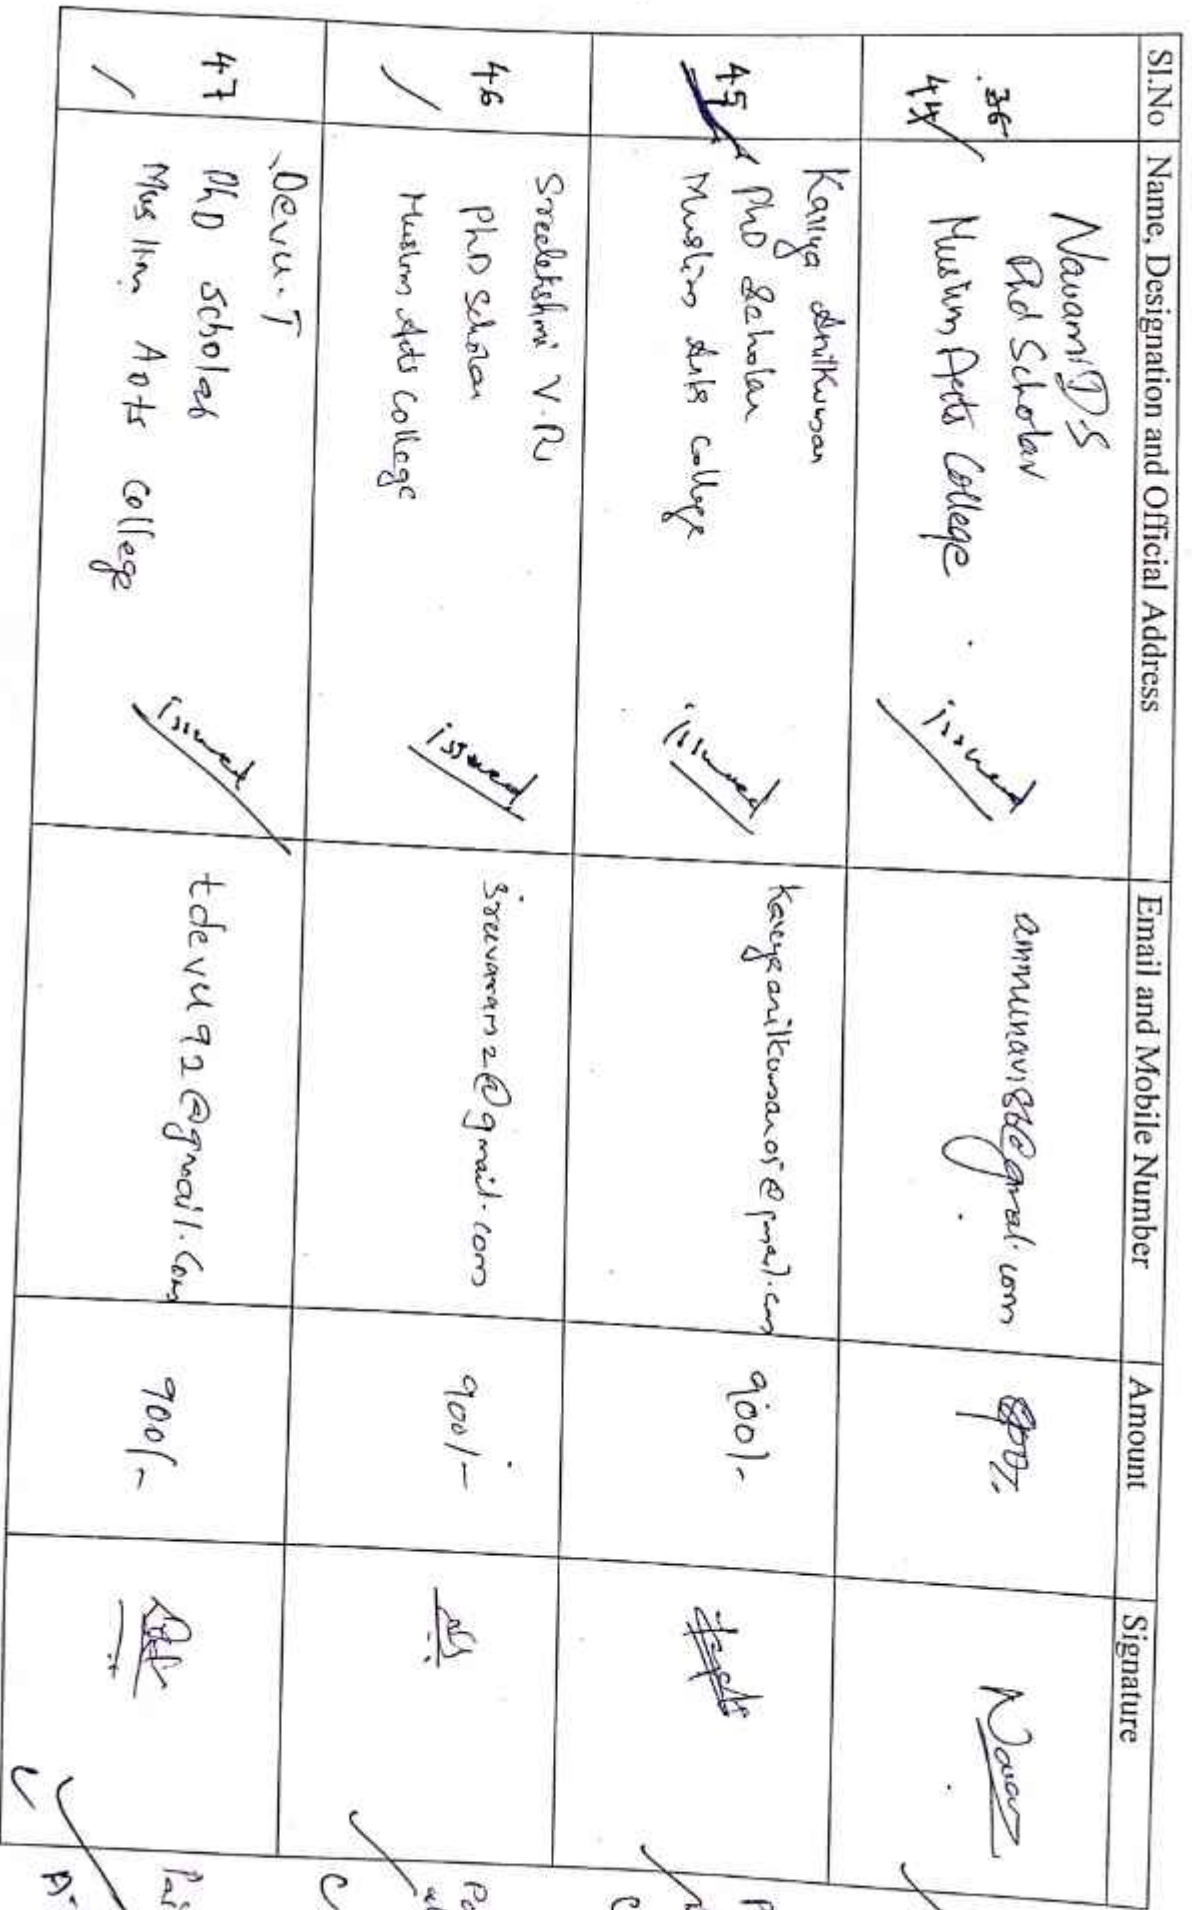 Sl.No Name, Designation and Official Address Email and Mobile Number Amount Signature
36
44
Navami D.S
Phd Scholar
Muslim Arts College
issued
45
Kavya Anilkumar
PhD Scholar
Muslim Arts College
issued
kavyaanilkumar05@gmail.com
900/-
46
Sreelekshmi V.R
PhD Scholar
Muslim Arts College
issued
sreevaram2@gmail.com
900/-
47
Devu.T
PhD Scholar
Muslim Arts College
issued
tdevu92@gmail.com
900/-